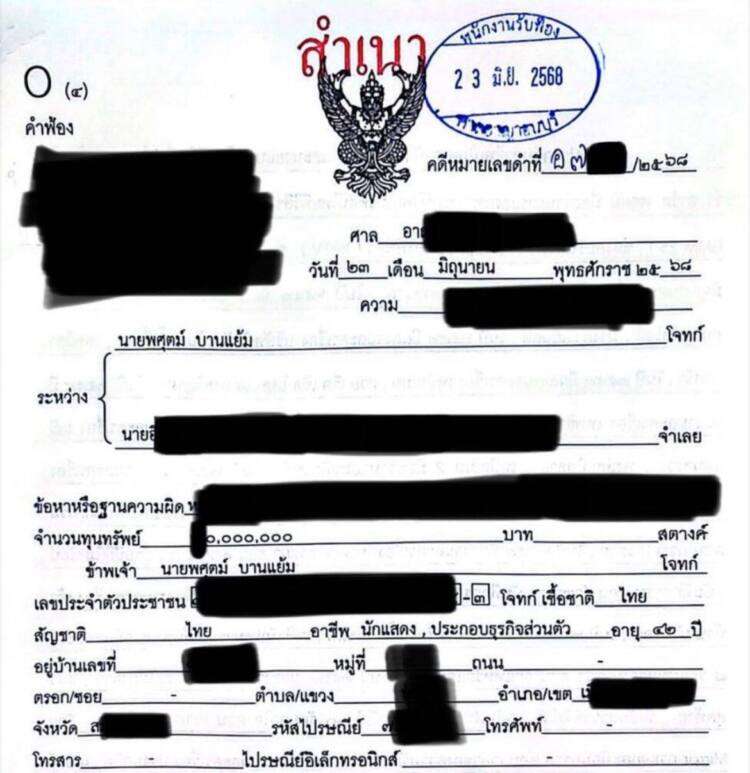 สำเนา
พนักงานรับฟ้อง
๐ (๔)
2 3 มิ.ย. 2568
คำฟ้อง
คดีหมายเลขดำที่ อ ๗ /๒๕๖๘
ศาล อา
วันที่ ๒๓ เดือน มิถุนายน พุทธศักราช ๒๕ ๖๘
ความ
นายพศุตม์ บานแย้ม โจทก์
ระหว่าง
นาย จำเลย
ข้อหาหรือฐานความผิด
จำนวนทุนทรัพย์ ๐,๐๐๐,๐๐๐ บาท สตางค์
ข้าพเจ้า นายพศุตม์ บานแย้ม โจทก์
เลขประจำตัวประชาชน -๓ โจทก์ เชื้อชาติ ไทย
สัญชาติ ไทย อาชีพ นักแสดง , ประกอบธุรกิจส่วนตัว อายุ ๔๒ ปี
อยู่บ้านเลขที่ หมู่ที่ ถนน -
ตรอก/ซอย - ตำบล/แขวง อำเภอ/เขต
จังหวัด ส รหัสไปรษณีย์ ๗ โทรศัพท์ -
โทรสาร ไปรษณีย์อิเล็กทรอนิกส์